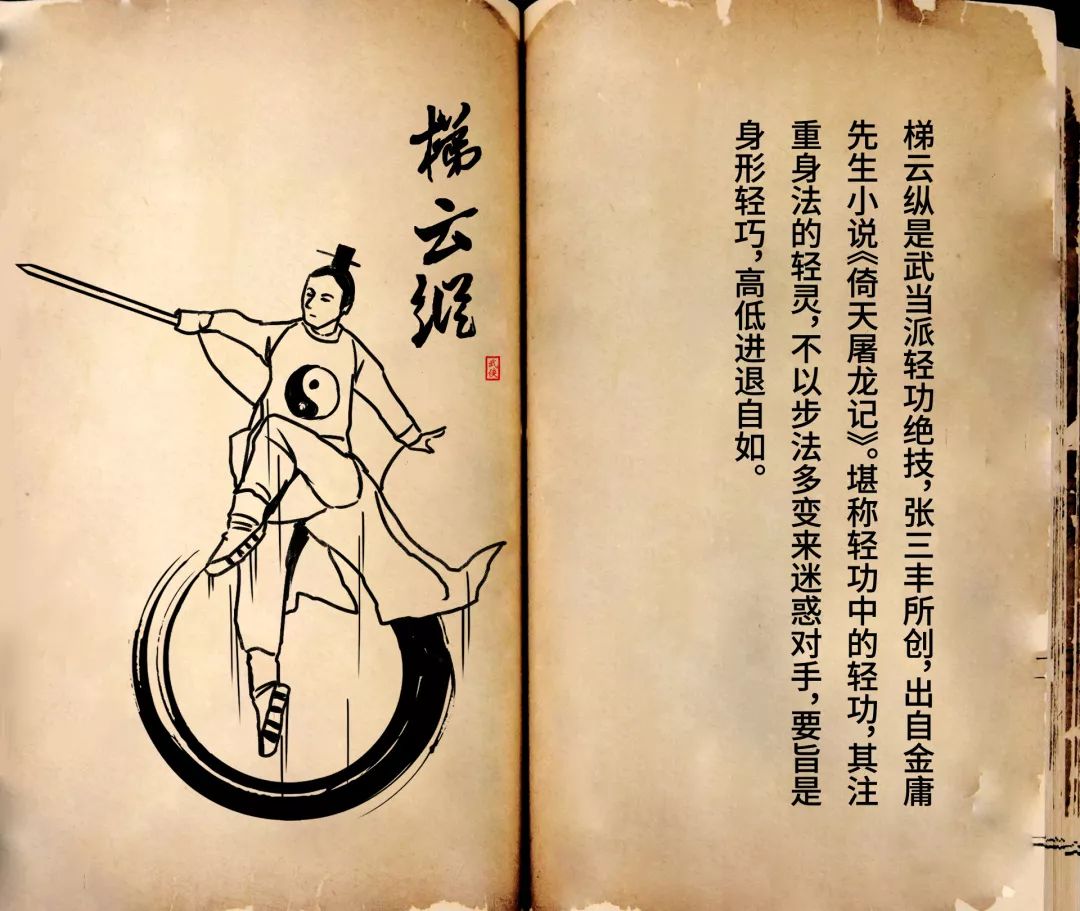 梯云纵
武侠
梯云纵是武当派轻功绝技，张三丰所创，出自金庸
先生小说《倚天屠龙记》。堪称轻功中的轻功，其注
重身法的轻灵，不以步法多变来迷惑对手，要旨是
身形轻巧，高低进退自如。